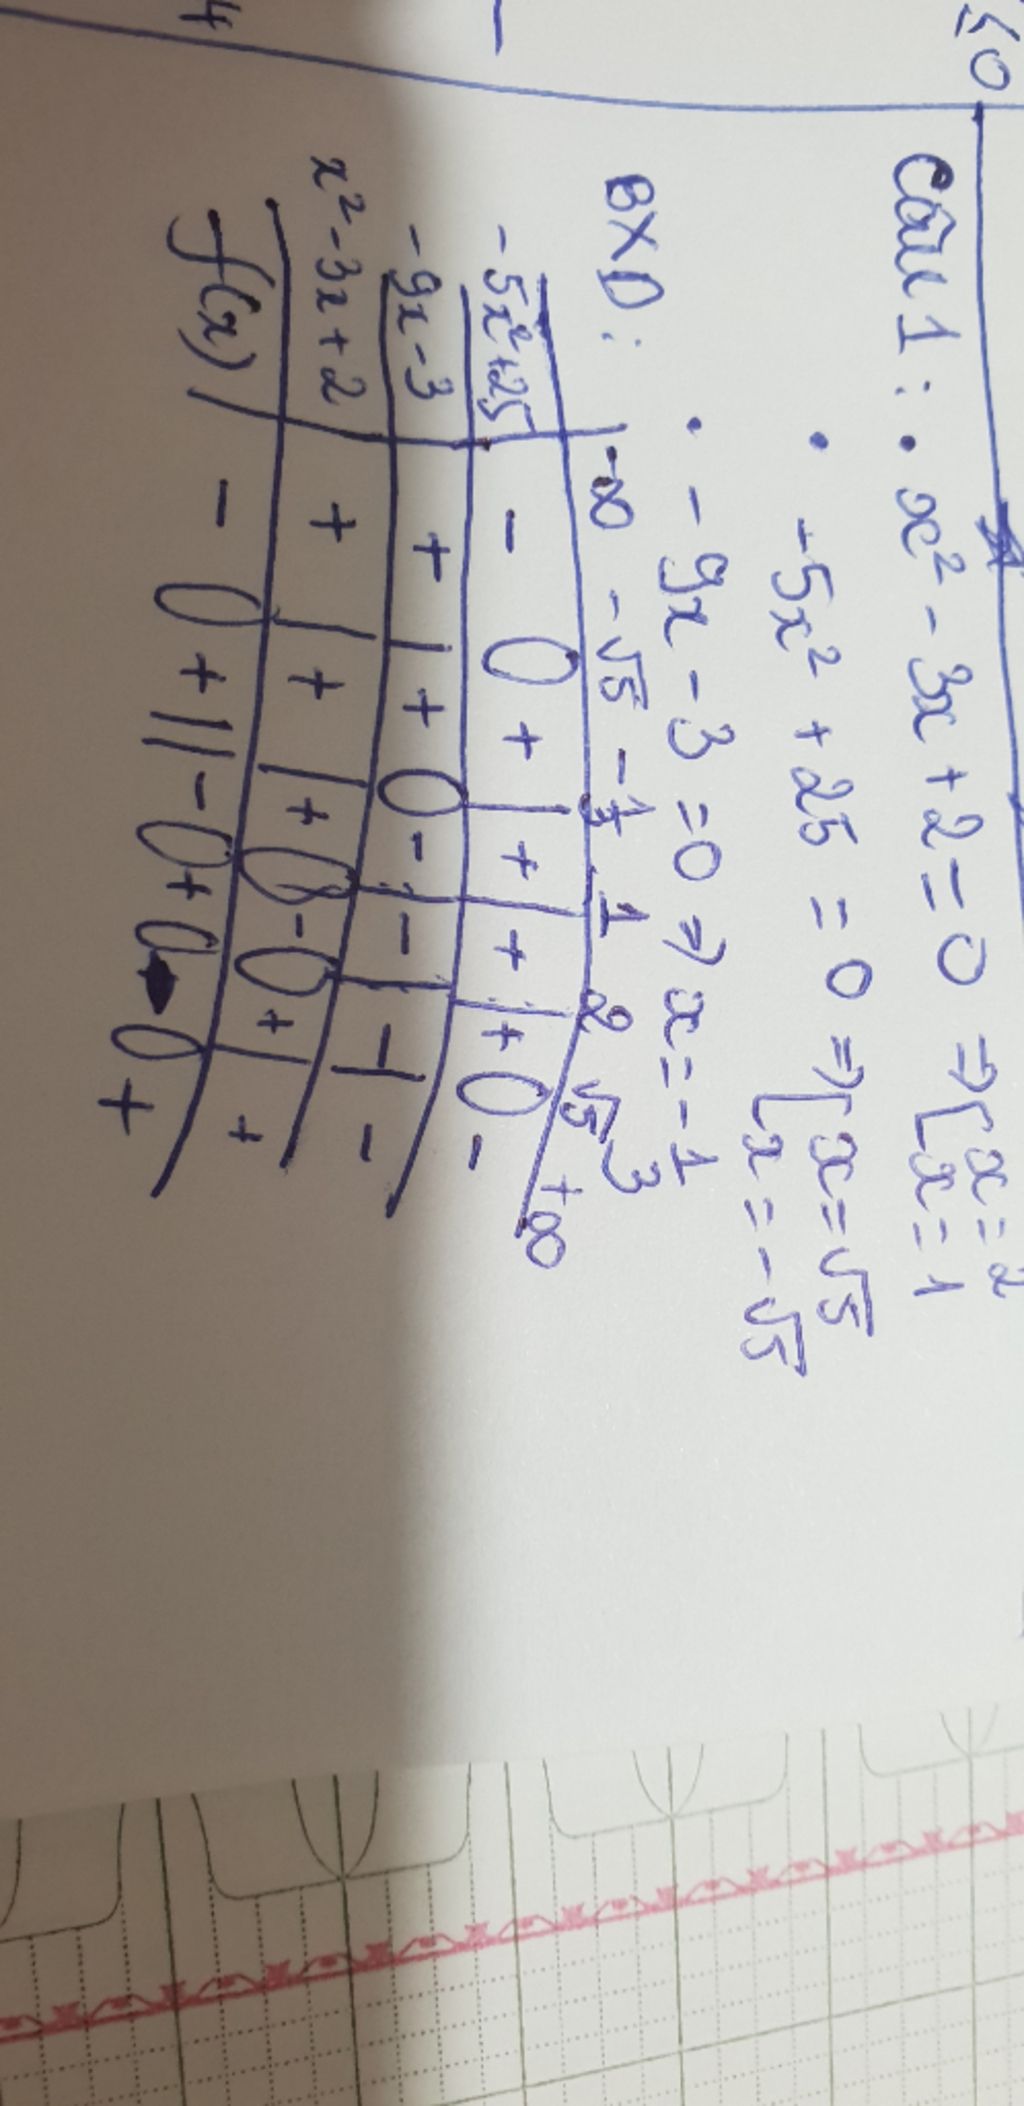 ≤0
Câu 1: • x² - 3x + 2 = 0 ⇒ [ x = 2
x = 1
• -5x² + 25 = 0 ⇒ [ x = √5
x = -√5
• -9x - 3 = 0 ⇒ x = -1/3
BXD:
-∞ -√5 -1/3 1 2 √5 +∞
-5x²+25 - 0 + | + | + | + 0 -
-9x-3 + | + 0 - | - | - | -
x²-3x+2 + | + | + 0 - 0 + | +
f(x) - 0 + || - 0 + 0 - 0 +
4